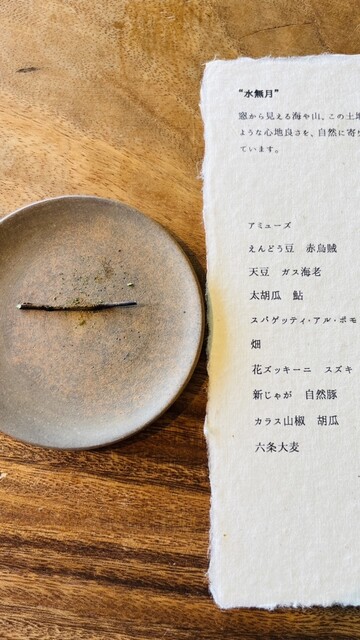 "水無月"
窓から見える海や山、この土地
ような心地良さを、自然に寄り
ています。
アミューズ
えんどう豆　赤烏賊
天豆　ガス海老
太胡瓜　鮎
スパゲッティ・アル・ポモ
畑
花ズッキーニ　スズキ
新じゃが　自然豚
カラス山椒　胡瓜
六条大麦